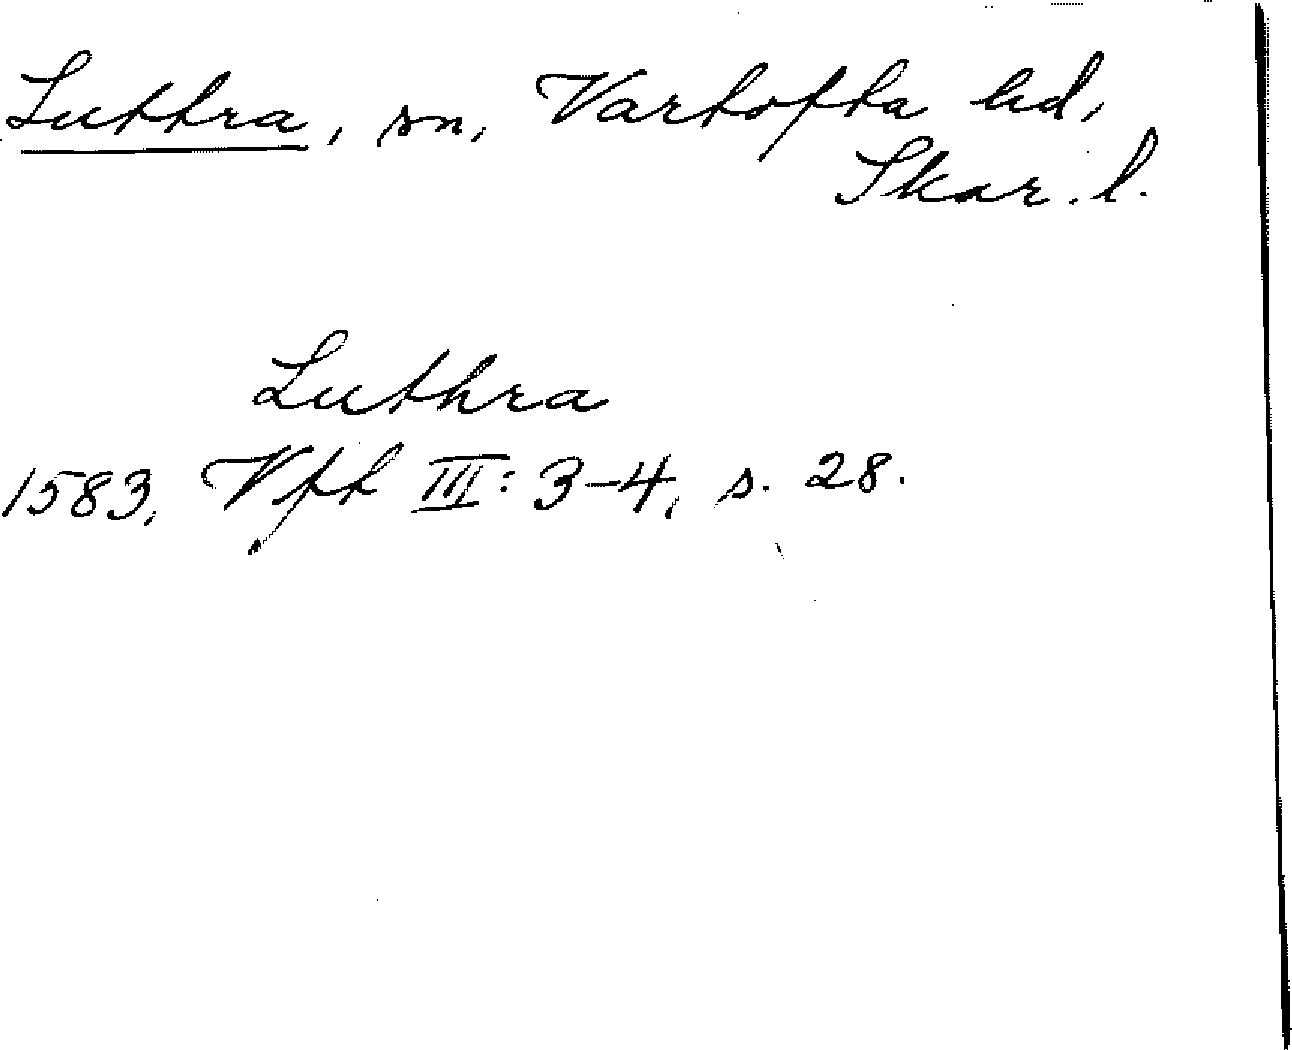 Luttra, sn, Vartofta hd,
Skar. l.
Luthra
1583, Vft III: 3-4, s. 28.